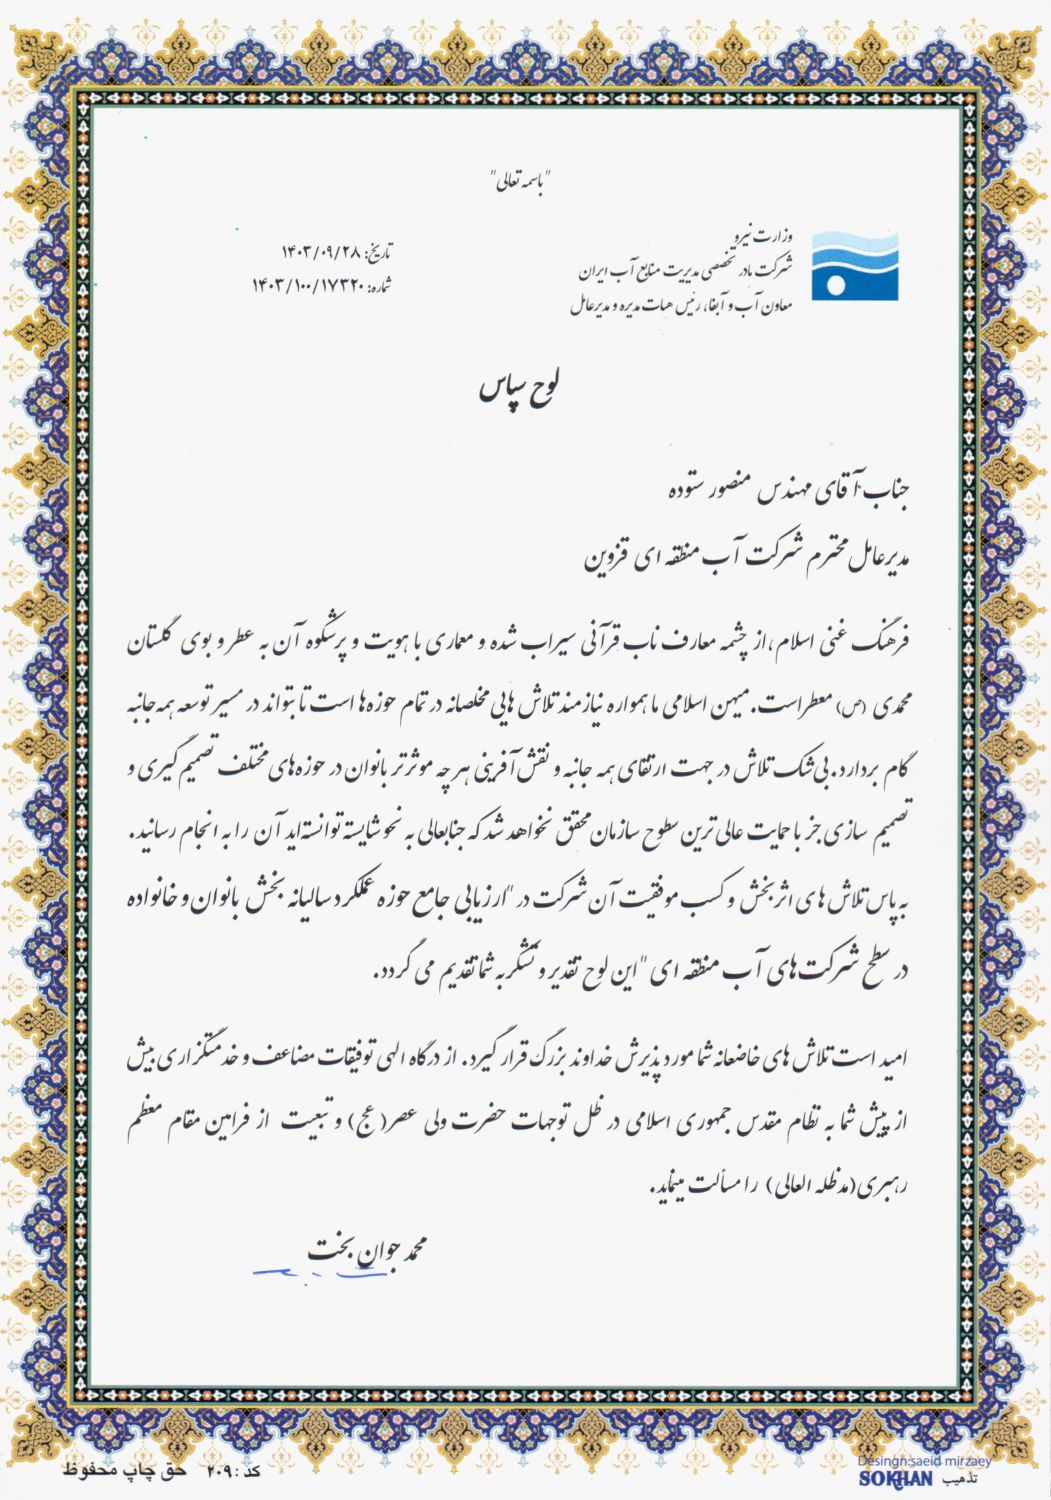 "باسمه تعالی"
وزارت نیرو
شرکت مادر تخصصی مدیریت منابع آب ایران
معاون آب و آبفا، رئیس هیات مدیره و مدیرعامل
تاریخ: ۱۴۰۳/۰۹/۲۸
شماره: ۱۴۰۳/۱۰۰/۱۷۳۲۰
لوح سپاس
جناب آقای مهندس منصور ستوده
مدیرعامل محترم شرکت آب منطقه ای قزوین
فرهنگ غنی اسلام ،از چشمه معارف ناب قرآنی سیراب شده و معماری با هویت و پرشکوه آن به عطر و بوی گلستان
محمدی (ص) معطراست. میهن اسلامی ما همواره نیازمند تلاش هایی مخلصانه در تمام حوزه ها است تا بتواند در مسیر توسعه همه جانبه
گام بردارد. بی شک تلاش در جهت ارتقای همه جانبه و نقش آفرینی هر چه موثرتر بانوان در حوزه های مختلف تصمیم گیری و
تصمیم سازی جز با حمایت عالی ترین سطوح سازمان محقق نخواهد شد که جنابعالی به نحو شایسته توانسته اید آن را به انجام رسانید.
به پاس تلاش های اثربخش و کسب موفقیت آن شرکت در "ارزیابی جامع حوزه عملکرد سالیانه بخش بانوان و خانواده
در سطح شرکت های آب منطقه ای " این لوح تقدیر و تشکر به شما تقدیم می گردد.
امید است تلاش های خاضعانه شما مورد پذیرش خداوند بزرگ قرار گیرد. از درگاه الهی توفیقات مضاعف و خدمتگزاری بیش
از پیش شما به نظام مقدس جمهوری اسلامی در ظل توجهات حضرت ولی عصر(عج) و تبعیت از فرامین مقام معظم
رهبری(مدظله العالی) را مسألت مینماید.
محمد جوان بخت
کد : ۲۰۹ حق چاپ محفوظ
Desingn:saeid mirzaey
تذهیب SOKHAN